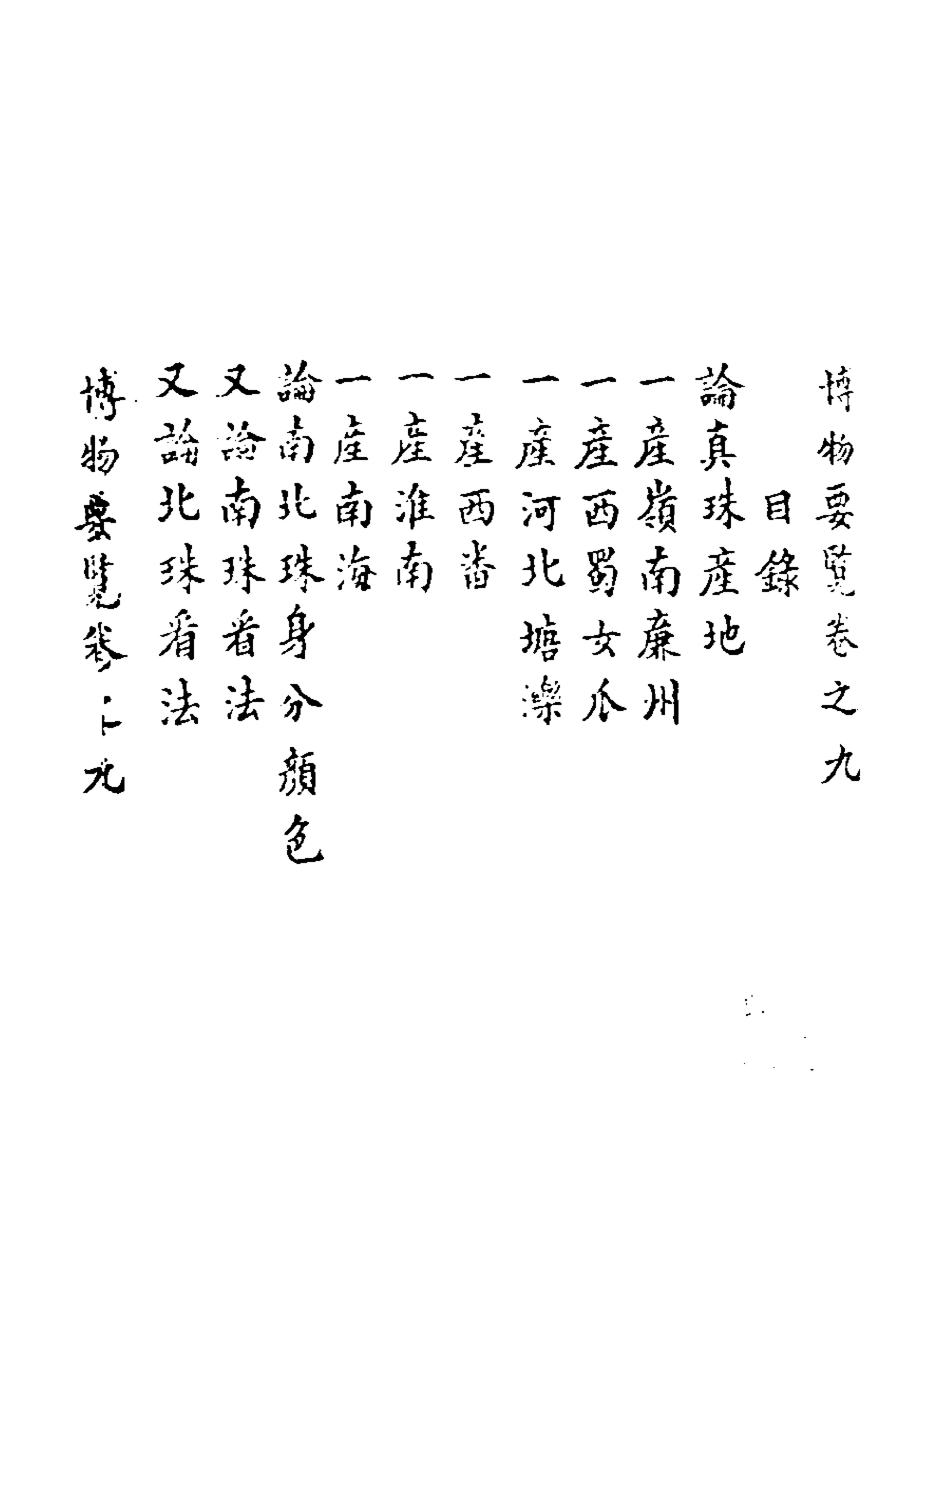 博物要覽卷之九
目錄
論真珠產地
一產嶺南廉州
一產西蜀女瓜
一產河北塘濼
一產西畨
一產淮南
一產南海
論南北珠身分顏色
又論南珠看法
又論北珠看法
博物要覽卷